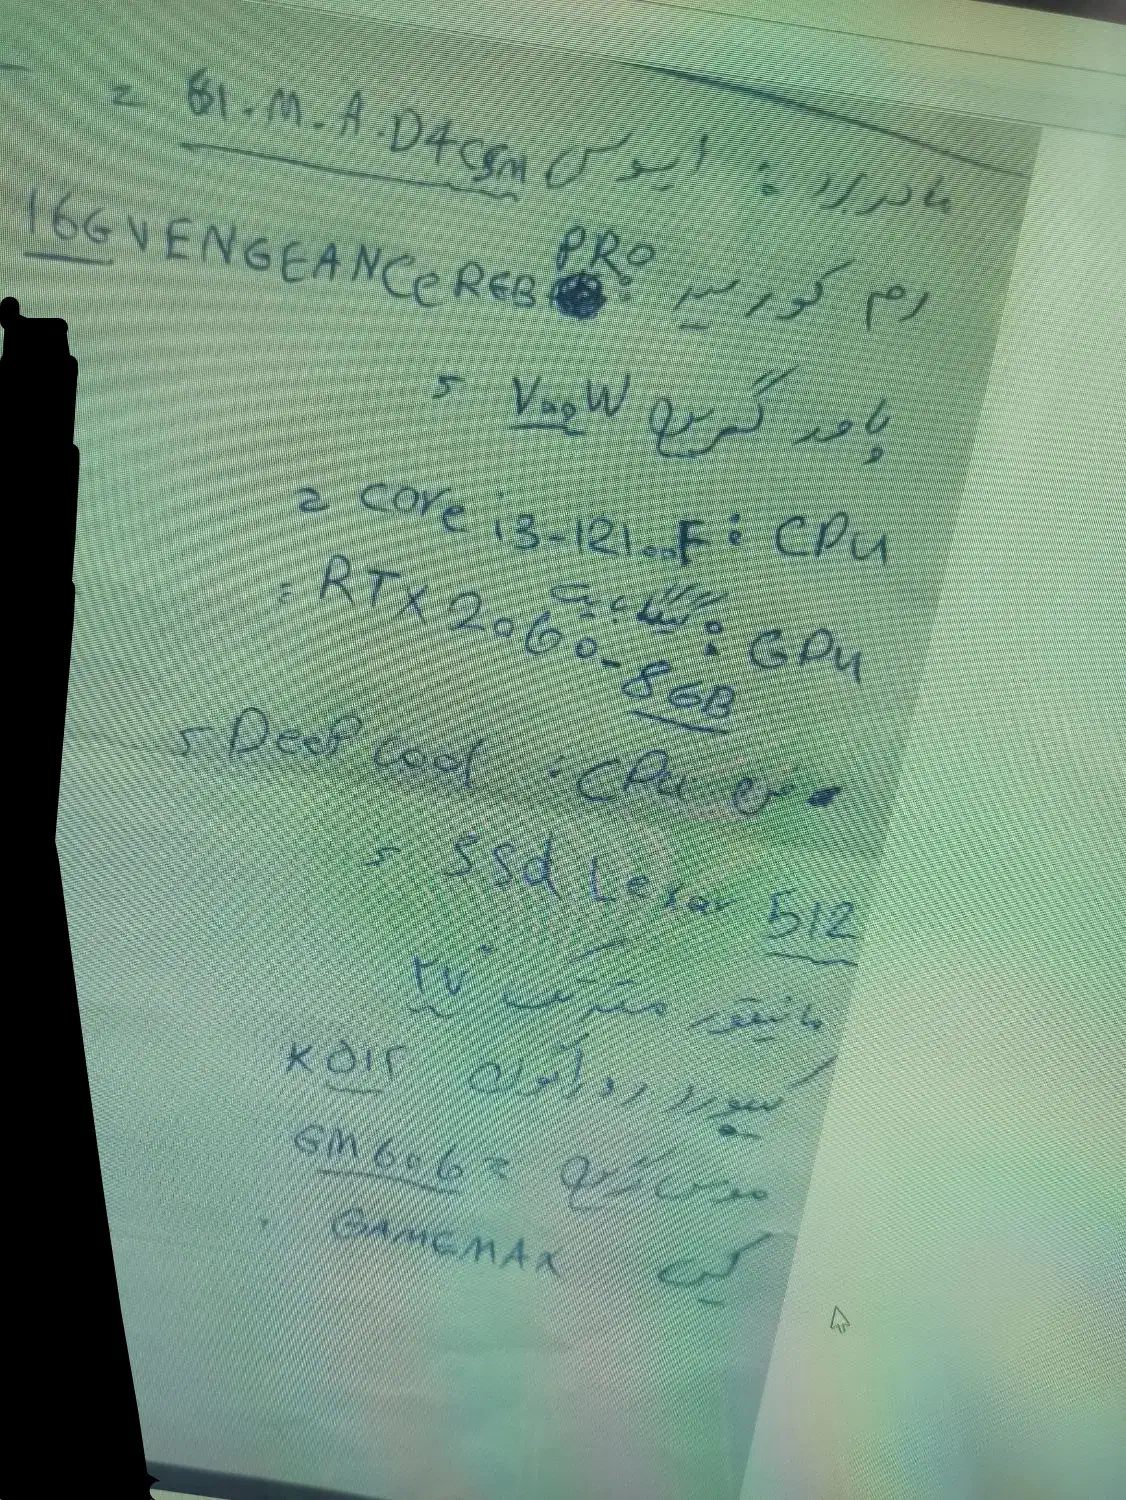 مادربرد : ایسوس 61.M.A.D4CSM =
رم کورسیر : 16G VENGEANCe RGB PRO
پاور گرین ۷۰۰W
CPU : core i3-12100F =
GPU : گیگابیت RTX 2060-8GB =
فن CPU : DeeP cool
SSd Lexar 512
مانیتور مشترک ۲۷
کیبورد ردراگون K۵۱۲
موس گرین GM606 =
کیس GAMEMAX